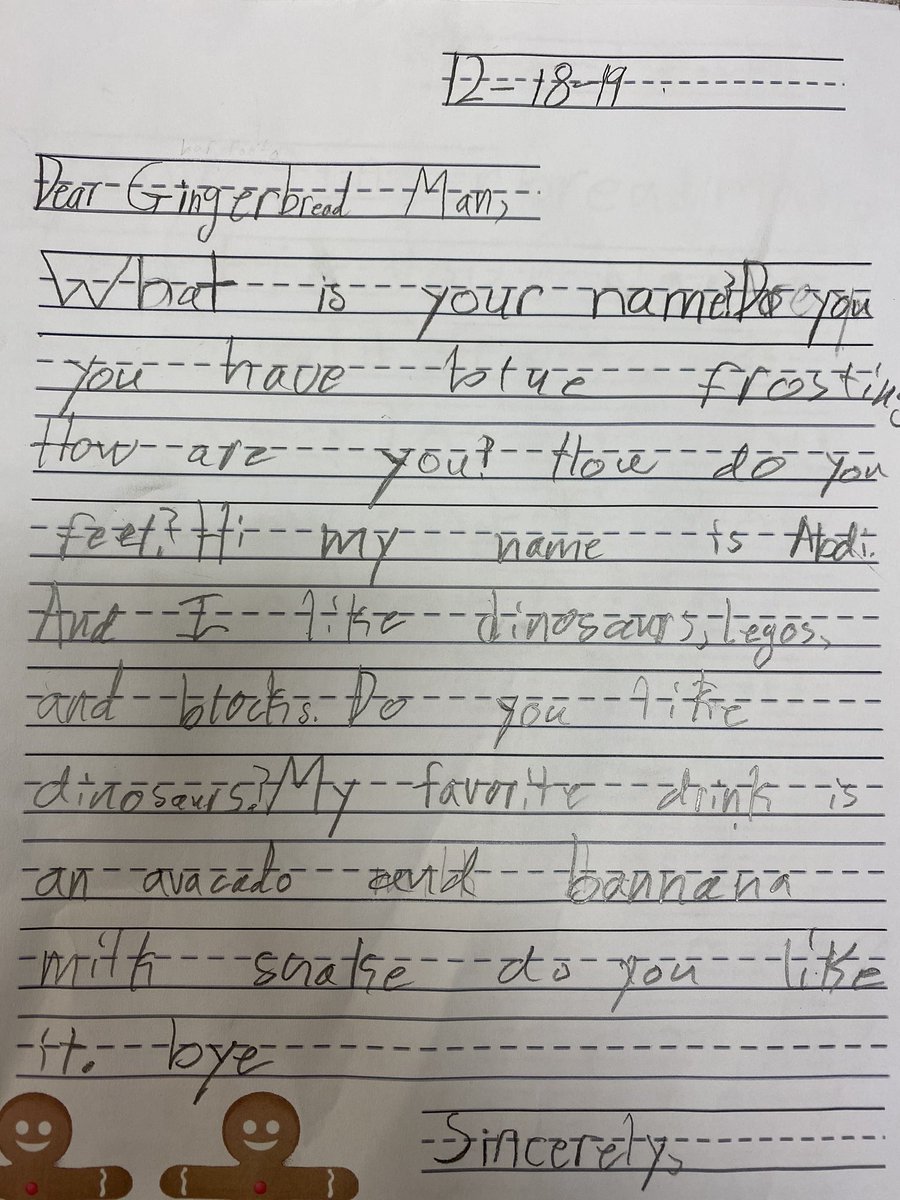 12-18-19
Dear Gingerbread Man,
What is your name? Do you
you have blue frosting
How are you? How do you
feel? Hi my name is Abdi.
And I like dinosaurs, Legos,
and blocks. Do you like
dinosaurs? My favorite drink is
an avacado and bannana
milk shake do you like
it. bye
Sincerely,